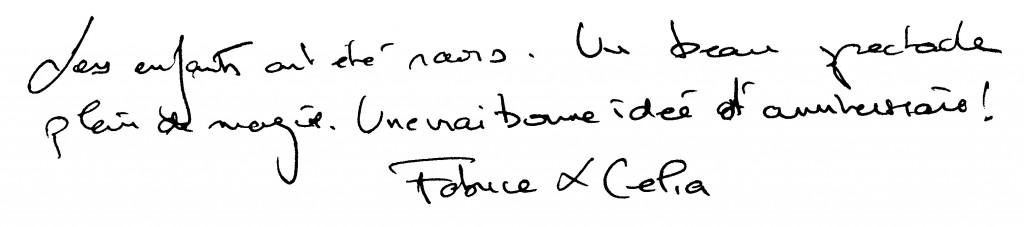 Les enfants ont été ravis. Un beau spectacle
plein de magie. Une vrai bonne idée d'anniversaire!
Fabrice & Celia